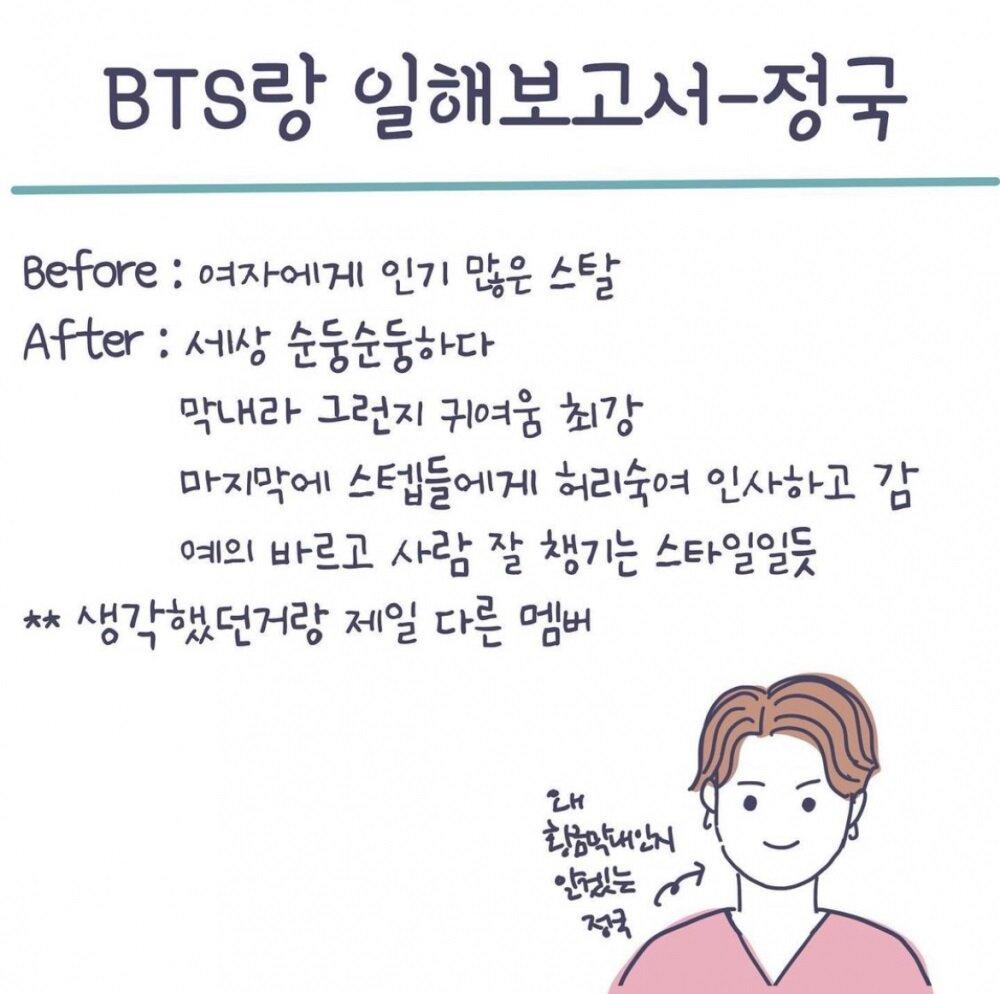 BTS랑 일해보고서-정국
Before : 여자에게 인기 많은 스탈
After : 세상 순둥순둥하다
막내라 그런지 귀여움 최강
마지막에 스텝들에게 허리숙여 인사하고 감
예의 바르고 사람 잘 챙기는 스타일일듯
** 생각했던거랑 제일 다른 멤버
왜
황금막내인지
알겠는
정국